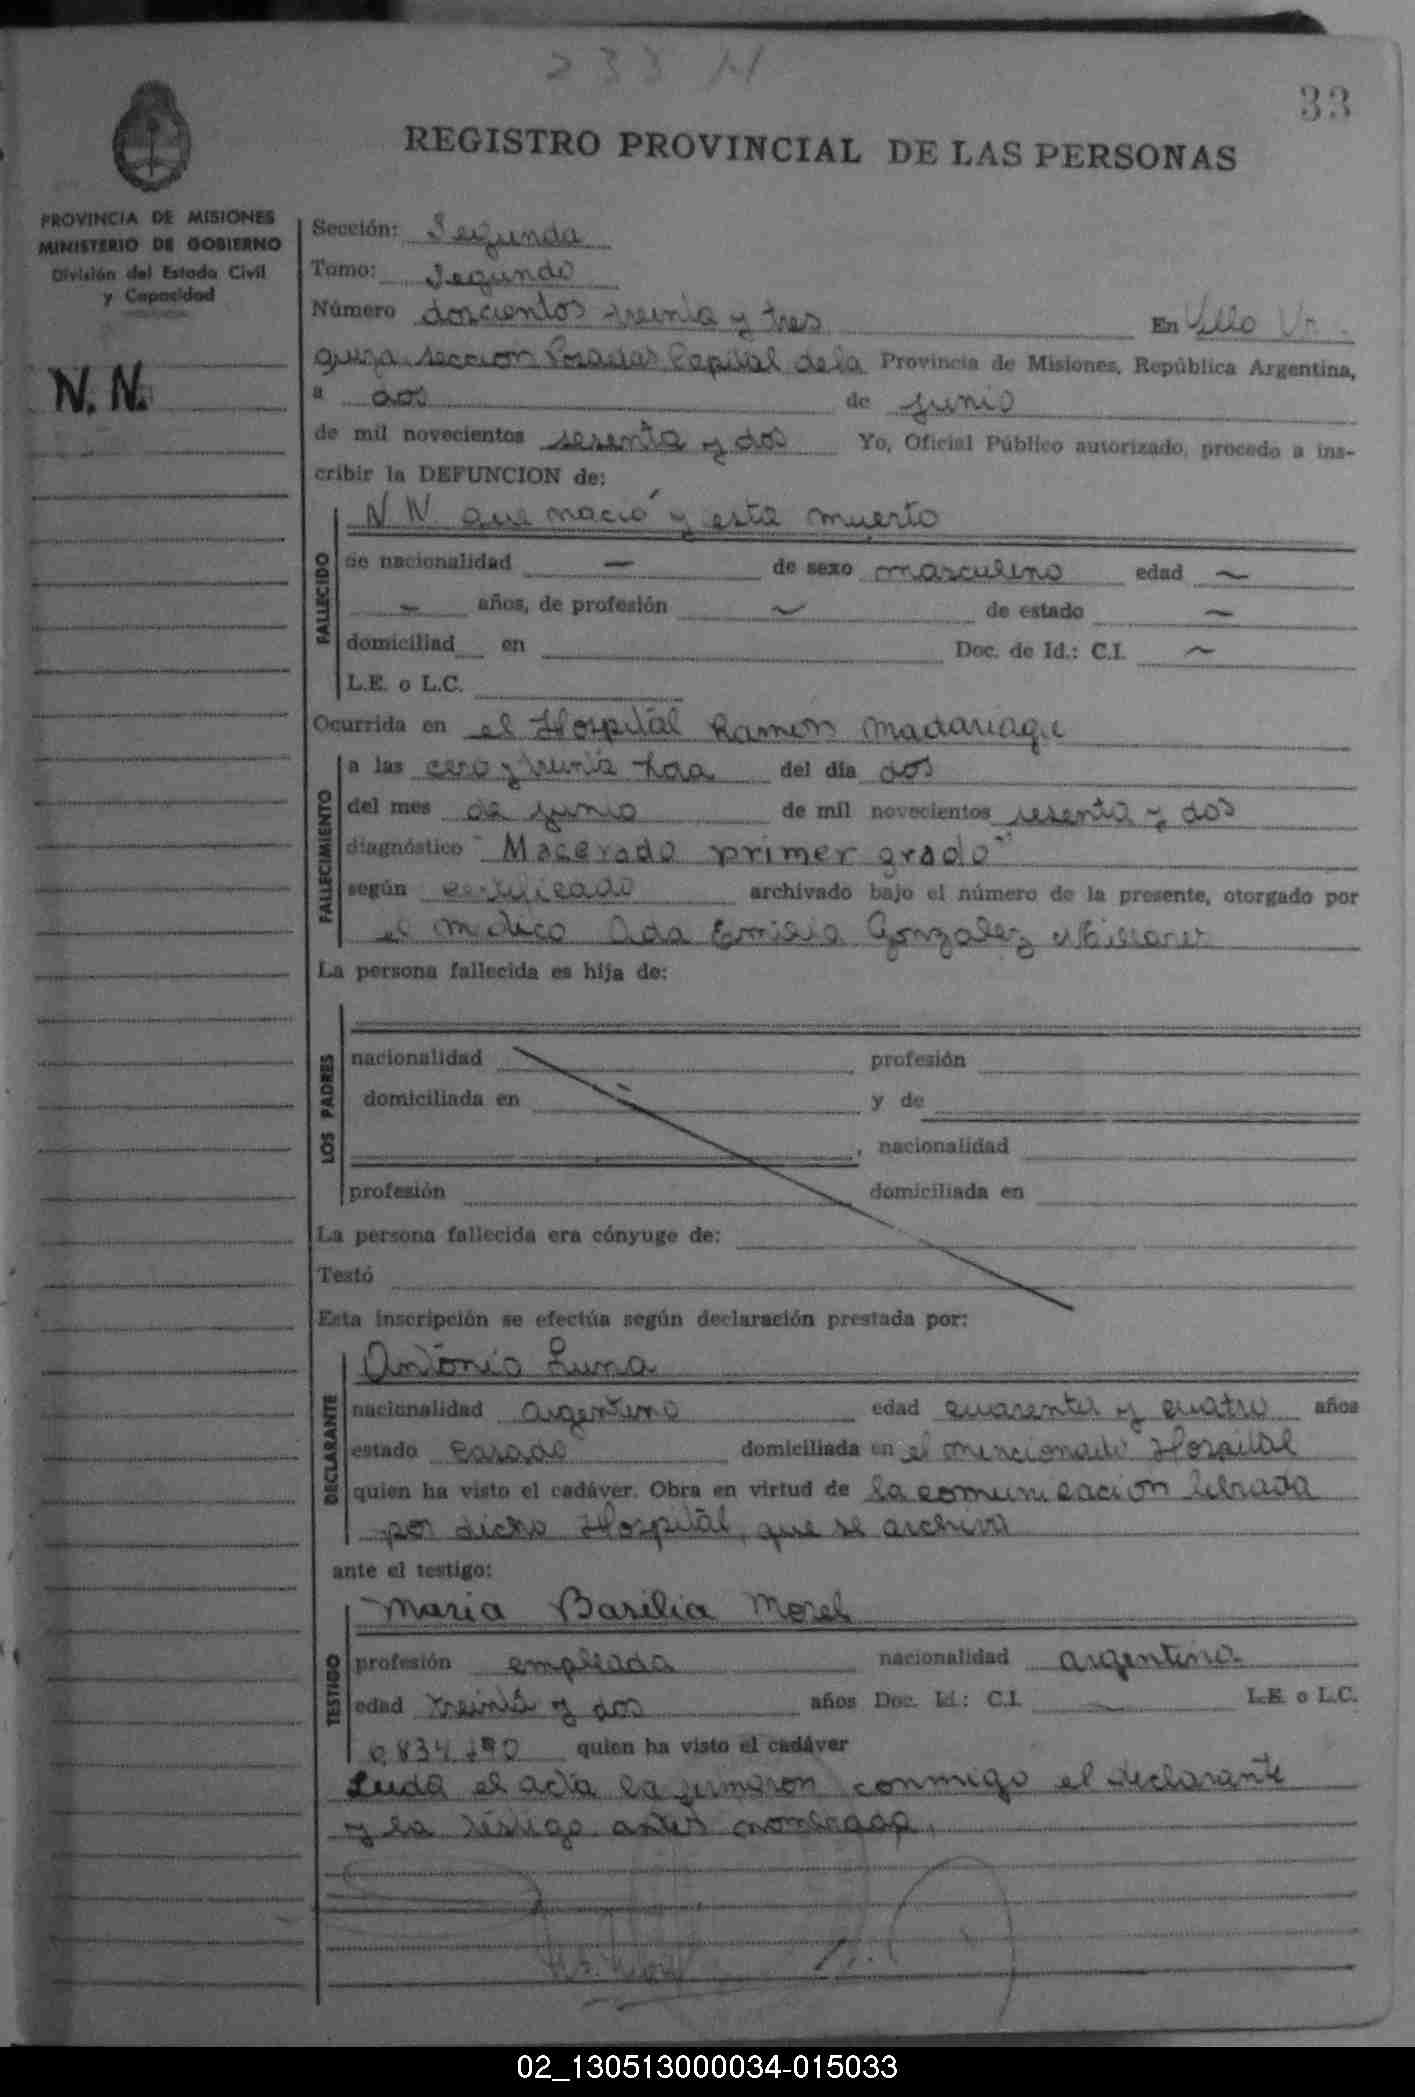 233 N
33
REGISTRO PROVINCIAL DE LAS PERSONAS
PROVINCIA DE MISIONES
MINISTERIO DE GOBIERNO
División del Estado Civil
y Capacidad
N. N.
Sección: Segunda
Tomo: Segundo
Número doscientos treinta y tres En Villa Ur-
quiza seccion Posadas Capital de la Provincia de Misiones, República Argentina,
a dos de junio
de mil novecientos sesenta y dos Yo, Oficial Público autorizado, procedo a ins-
cribir la DEFUNCION de:
FALLECIDO
N N que nació y esta muerto
de nacionalidad — de sexo masculino edad ~
~ años, de profesión ~ de estado ~
domiciliad en Doc. de Id.: C.I. ~
L.E. o L.C.
Ocurrida en el Hospital Ramón Madariaga
FALLECIMIENTO
a las cero y treinta hora del día dos
del mes de junio de mil novecientos sesenta y dos
diagnóstico "Macerado primer grado"
según certificado archivado bajo el número de la presente, otorgado por
el médico Ada Emilia Gonzalez
La persona fallecida es hija de:
LOS PADRES
nacionalidad profesión
domiciliada en y de
, nacionalidad
profesión domiciliada en
La persona fallecida era cónyuge de:
Testó
Esta inscripción se efectúa según declaración prestada por:
DECLARANTE
Antonio Luna
nacionalidad argentino edad cuarenta y cuatro años
estado casado domiciliada en el mencionado Hospital
quien ha visto el cadáver. Obra en virtud de la comunicación librada
por dicho Hospital, que se archiva
ante el testigo:
TESTIGO
Maria Basilia Morel
profesión empleada nacionalidad argentina
edad treinta y dos años Doc. Id.: C.I. ~ L.E. o L.C.
quien ha visto el cadáver
Leida el acta la firmaron conmigo el declarante
y la testigo antes nombrada.
02_130513000034-015033